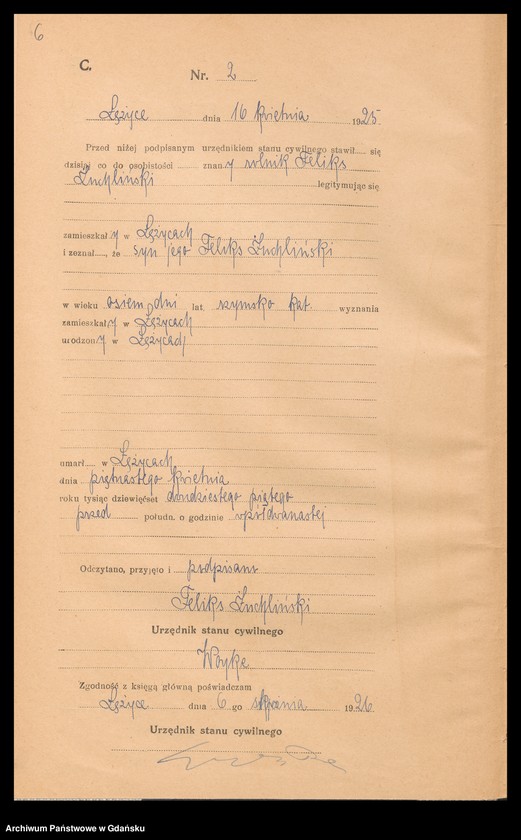 6
C.
Nr. 2
Łężyce dnia 16 kwietnia 1925
Przed niżej podpisanym urzędnikiem stanu cywilnego stawił się
dzisiaj co do osobistości znany rolnik Feliks
Żuchliński legitymując się
zamieszkały w Łężycach
i zeznał, że syn jego Feliks Żuchliński
w wieku osiem dni lat, rzymsko kat. wyznania
zamieszkały w Łężycach
urodzony w Łężycach
umarł w Łężycach
dnia piętnastego kwietnia
roku tysiąc dziewięćset dwudziestego piątego
przed połudn. o godzinie wpółdwanastej
Odczytano, przyjęto i podpisano
Feliks Żuchliński
Urzędnik stanu cywilnego
Woyke
Zgodność z księgą główną poświadczam
Łężyce dnia 6 go stycznia 1926
Urzędnik stanu cywilnego
Archiwum Państwowe w Gdańsku